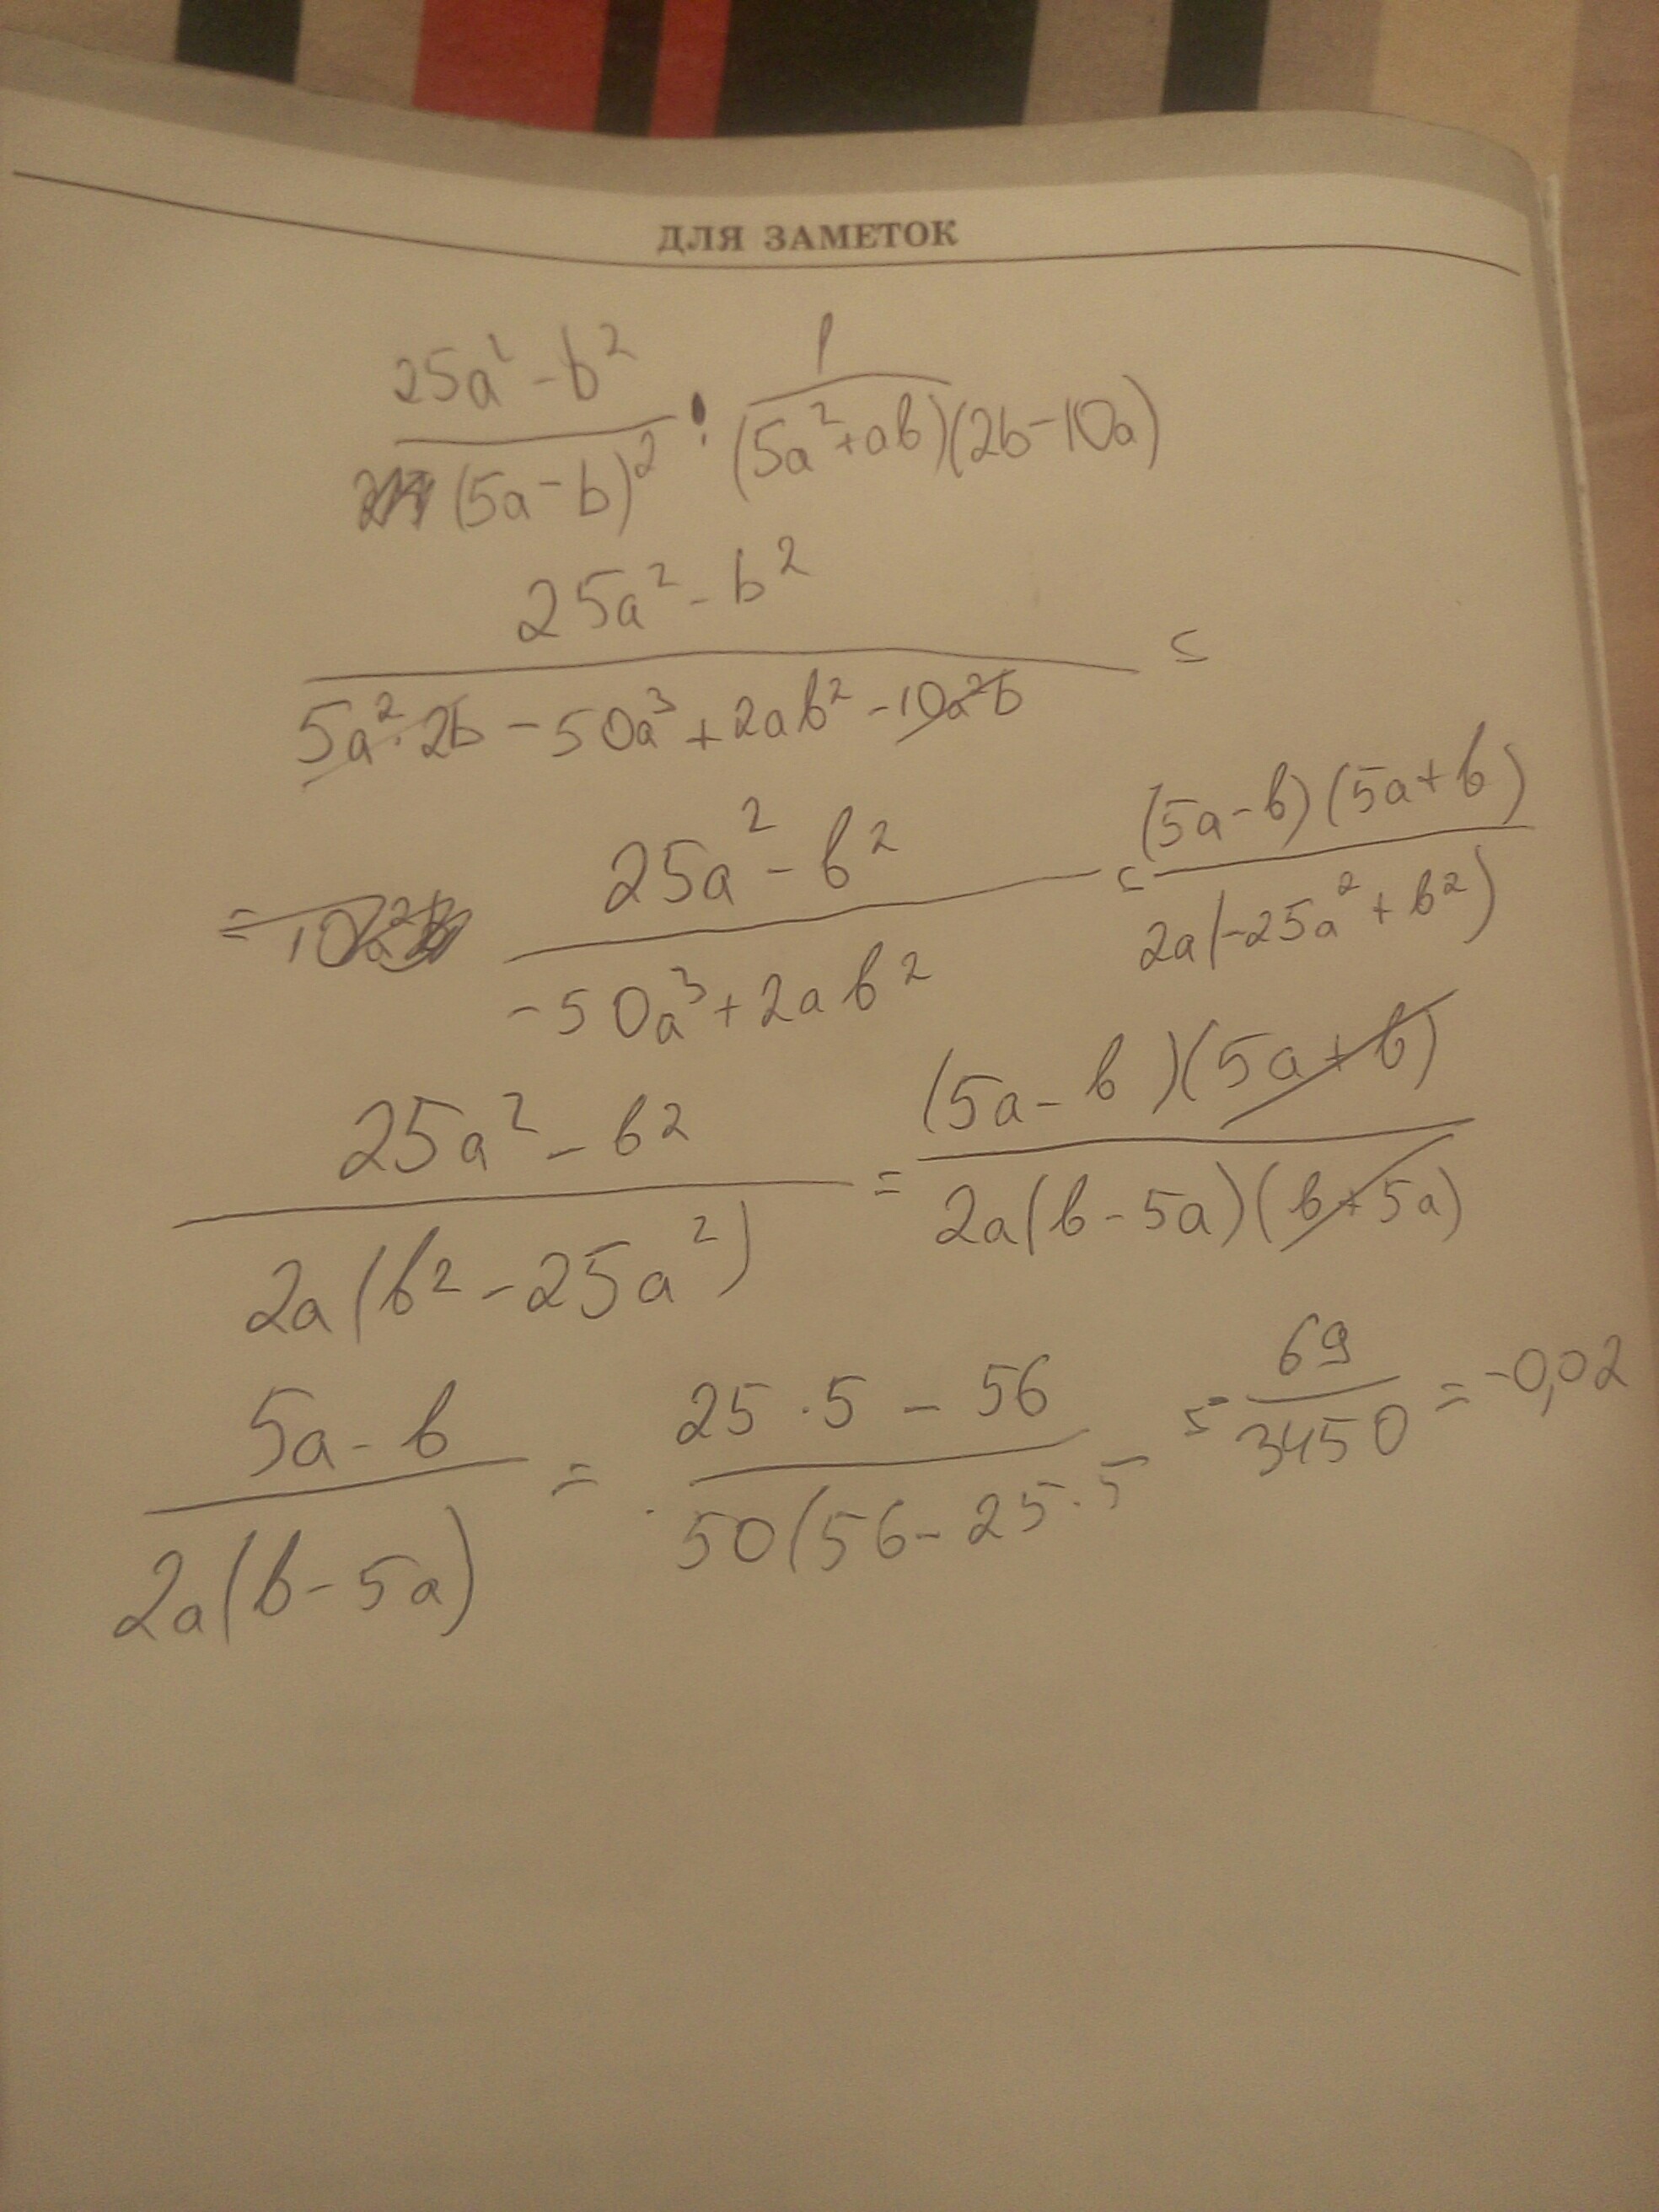 ДЛЯ ЗАМЕТОК
25a² - b² / (5a - b)² : 1 / (5a² + ab)(2b - 10a)
25a² - b² / 5a² · 2b - 50a³ + 2ab² - 10a²b =
= 25a² - b² / -50a³ + 2ab² = (5a - b)(5a + b) / 2a(-25a² + b²)
25a² - b² / 2a(b² - 25a²) = (5a - b)(5a + b) / 2a(b - 5a)(b + 5a)
5a - b / 2a(b - 5a) = 25 · 5 - 56 / 50(56 - 25 · 5 = 69 / 3450 = -0,02